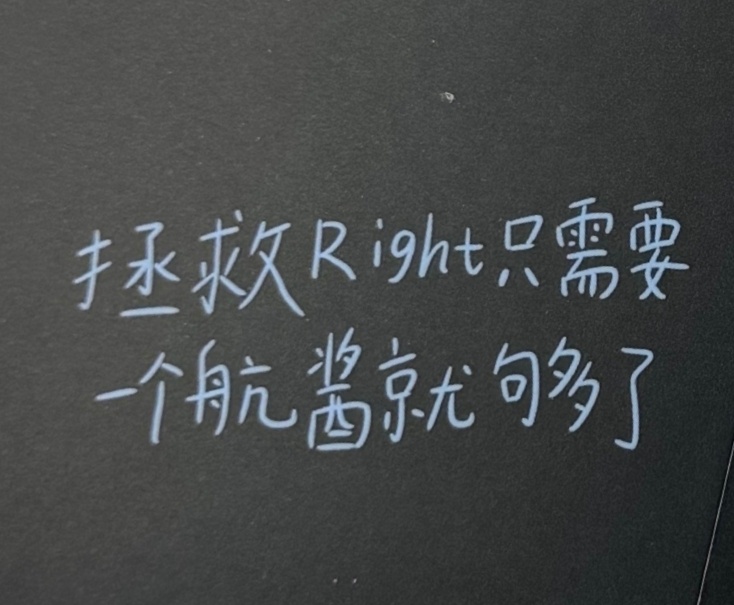 拯救Right只需要
一个航酱就够了